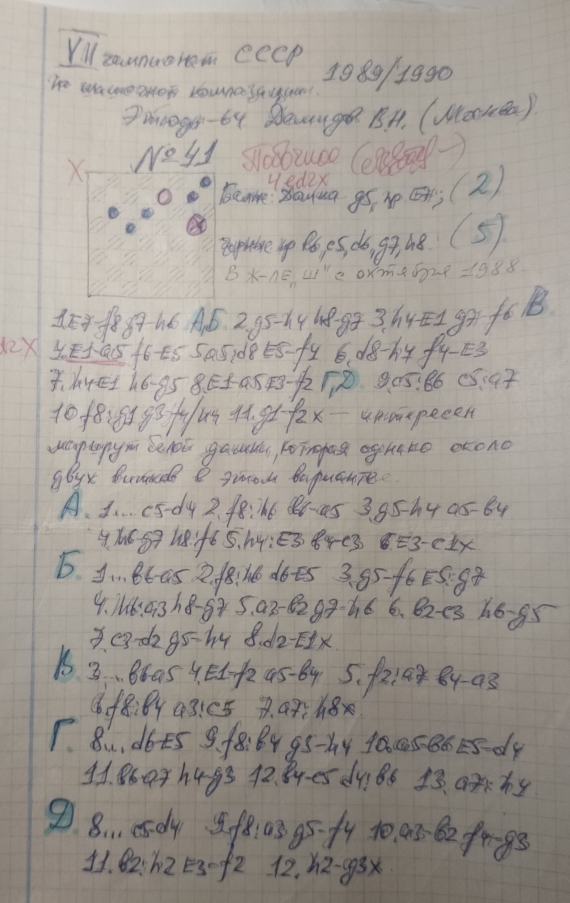 VII чемпионат СССР
по шашечной композиции. 1989/1990
Этюды-64 Демидов В.Н. (Москва).
№ 41 Побочное
X 4.ed2x
Белые: Дамка g5, пр E7; (2)
Черные пр b6, c5, d6, g7, h8. (5)
В ж-ле „Ш" с октября 1988
1.E7-f8 g7-h6 А,Б 2.g5-h4 h8-g7 3.h4-E1 g7-f6 В
4.E1-a5 f6-E5 5.a5:d8 E5-f4 6.d8-h4 f4-E3
7.h4-E1 h6-g5 8.E1-a5 E3-f2 Г,Д 9.a5:b6 c5:a7
10.f8:g1 g3-f4/h4 11.g1-f2x — интересен
маршрут белой дамки, которая однако около
двух витков в этом варианте.
А. 1... c5-d4 2.f8:h6 b6-a5 3.g5-h4 a5-b4
4.h6-g7 h8:f6 5.h4:E3 b4-c3 6.E3-c1x
Б. 1...b6-a5 2.f8:h6 d6-E5 3.g5-f6 E5:g7
4.h6:a3 h8-g7 5.a3-b2 g7-h6 6.b2-c3 h6-g5
7.c3-d2 g5-h4 8.d2-E1x
В. 3...b6a5 4.E1-f2 a5-b4 5.f2:a7 b4-a3
6.f8:b4 a3:c5 7.a7:h8x
Г. 8... d6-E5 9.f8:b4 g3-h4 10.a5-b6 E5-d4
11.b6a7 h4-g3 12.b4-c5 d4:b6 13.a7:h4
Д 8... c5-d4 9.f8:a3 g5-f4 10.a3-b2 f4-g3
11.b2:h2 E3-f2 12.h2-g3x